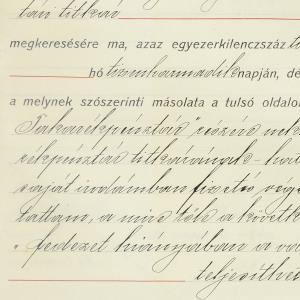 tári titkár
megkeresésére ma, azaz egyezerkilencszáz ti
hó tizenharmadik napján, dé
a melynek szószerinti másolata a tulsó oldalo
Takarékpénztár" részére
rékpénztár titkárának hat
saját irodámban fizető vég
tattam, a mire tőle a követk
" fedezet hiányában a vá
teljesíthe